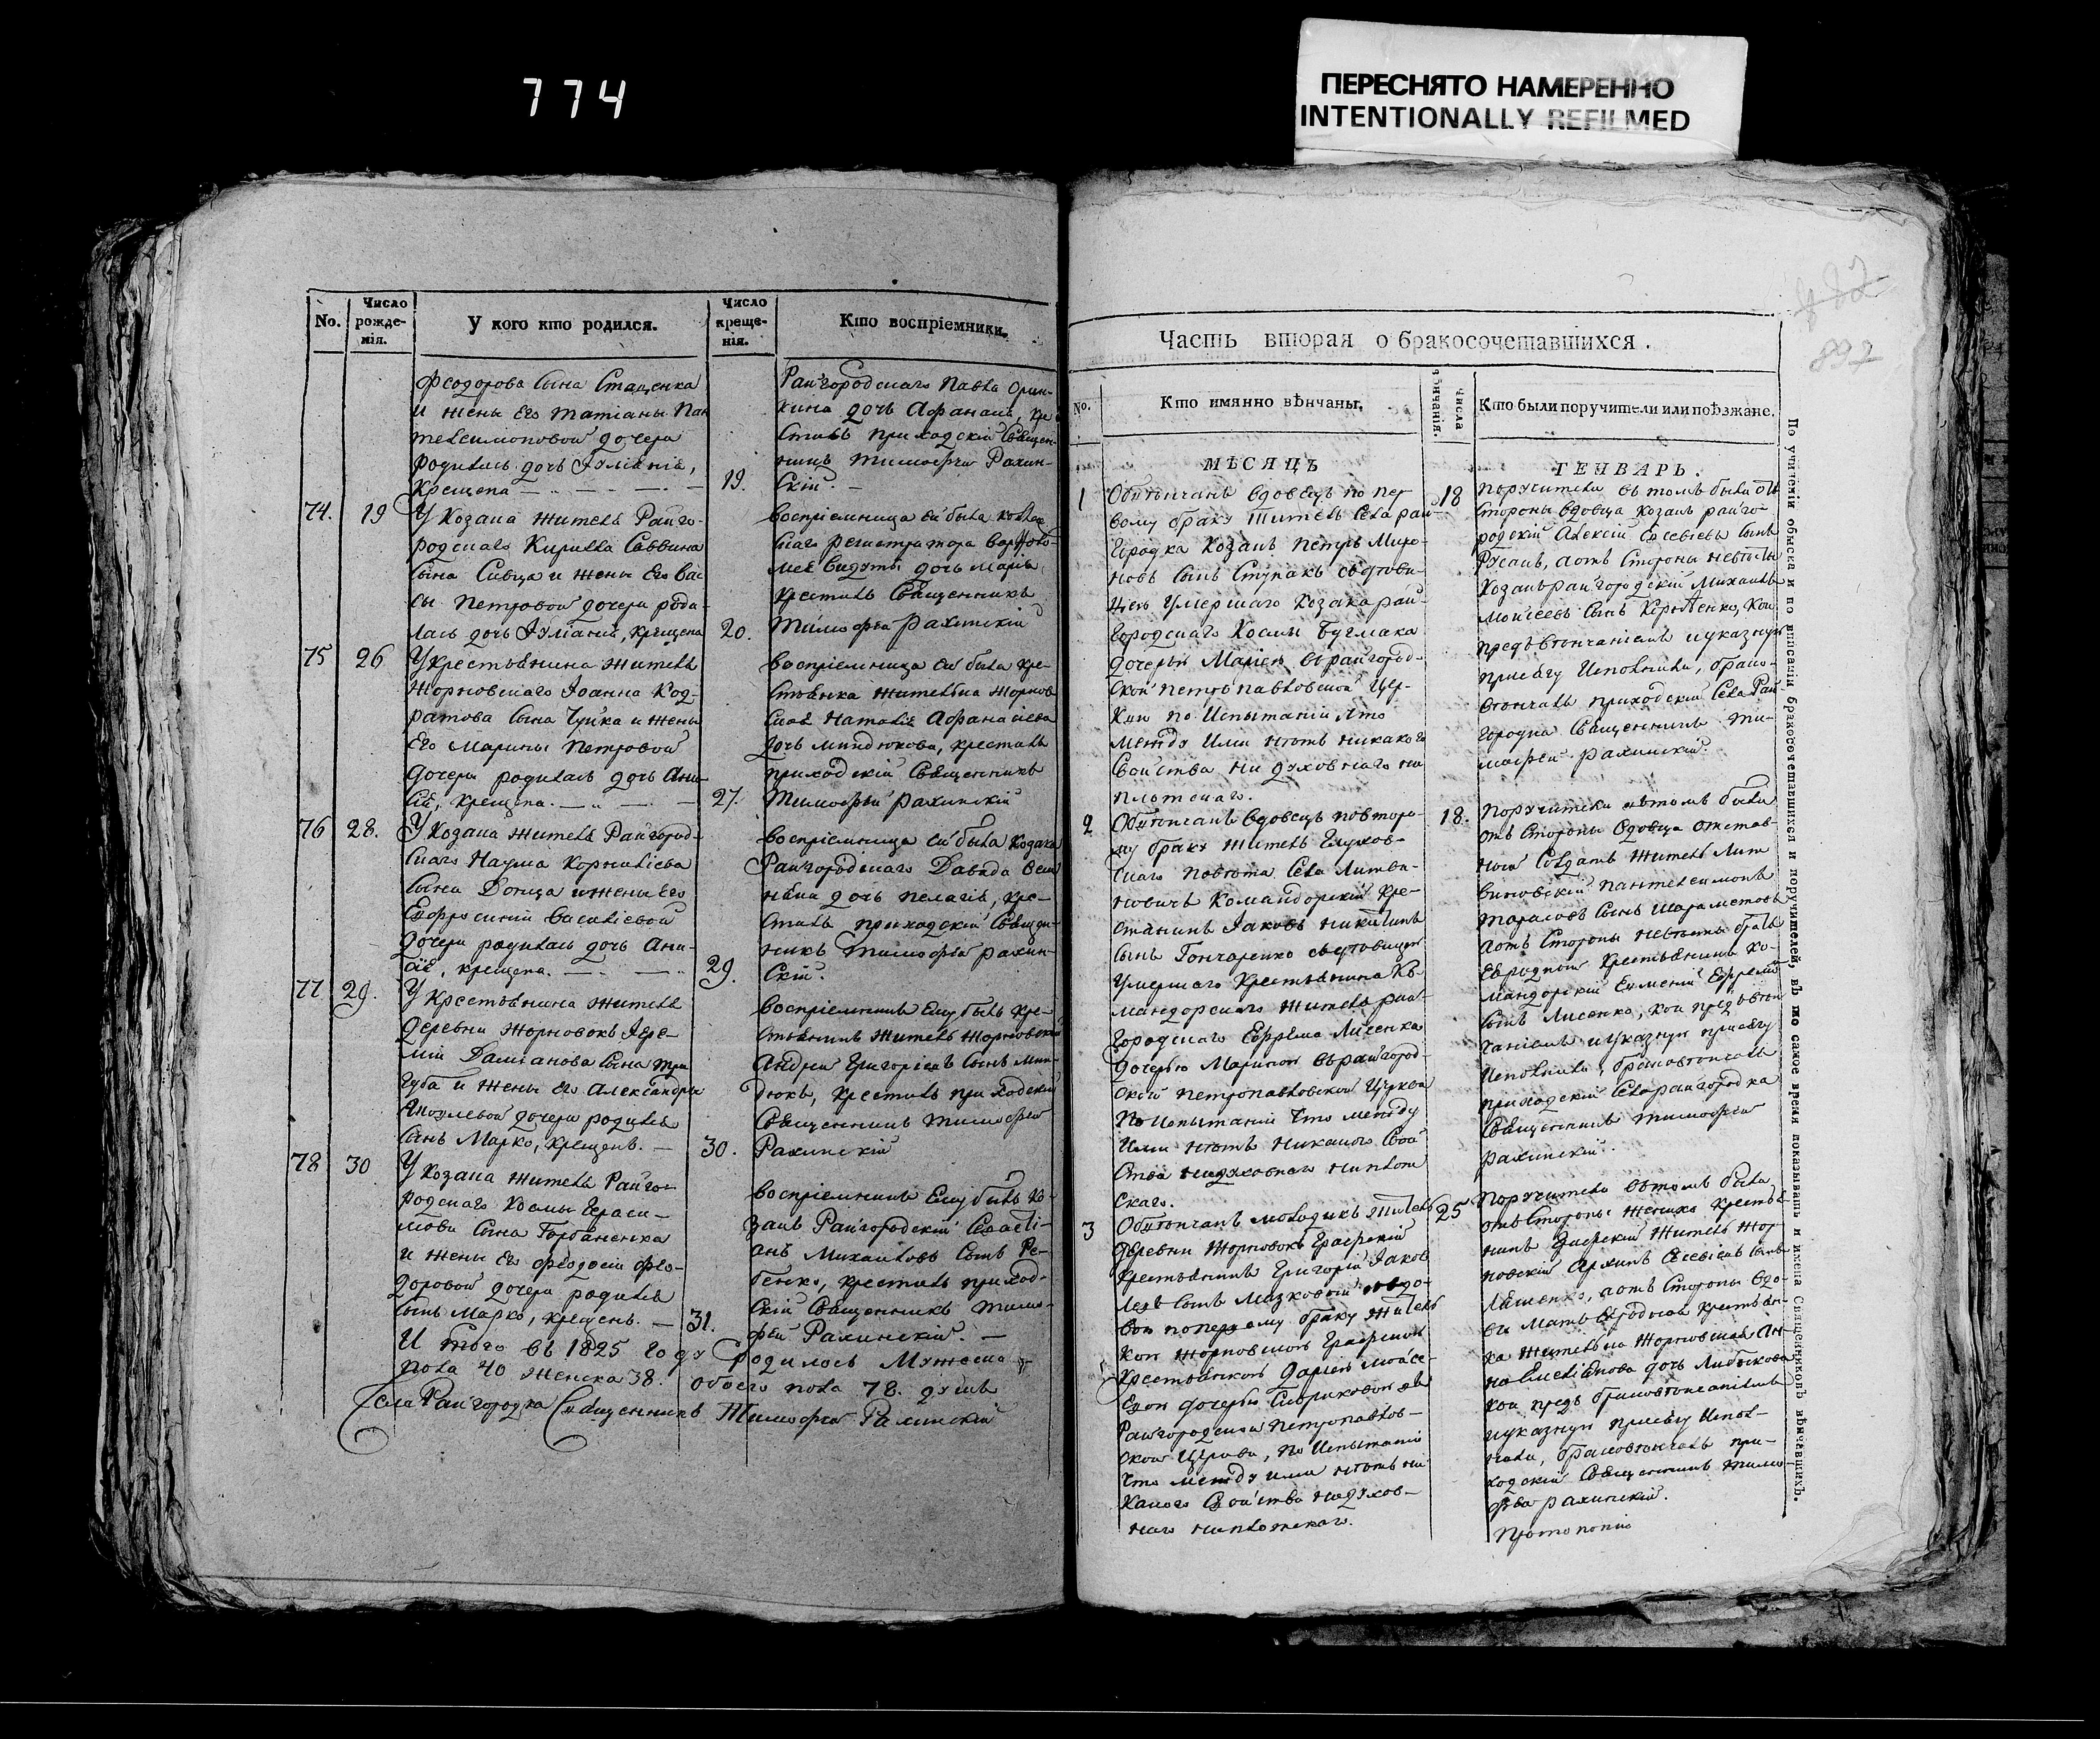 774
ПЕРЕСНЯТО НАМЕРЕННО
INTENTIONALLY REFILMED
No.
Число рожденія.
У кого кто родился.
Число крещенія.
Кто воспріемники.
Феодорова сына Стаценка
и жены Его Татіаны Пан
телеимоновой дочери
родилась дочь Іуліанія,
крещена
19.
Райгородскаго Павла
дочь Афанасія, кре
стилъ приходскій Священ-
никъ Тимофей Рахин-
скій.
74. 19
У Козака жителя Райго-
родскаго Кирилла Саввина
сына Сивца и жены Его Вас
сы Петровой дочери роди-
лась дочь Іуліанія, крещена
20.
воспріемница ей была
скаго регистратора
дочь Марія
крестилъ Священникъ
Тимофей Рахинскій
75 26
У крестьянина жителя
Жорновскаго Іоанна Код-
ратова сына Чуйка и жены
Его Марины Петровой
дочери родилась дочь Ани-
сія, крещена.
27.
воспріемница ей была кре-
стьянка жителька Жорнов
ская Наталія Афанасіева
дочь Миндюкова, крестилъ
приходскій Священникъ
Тимофей Рахинскій
76 28.
У Козака жителя Райгород-
скаго Наума Корниліева
сына Донца и жены Его
Евфросиніи Василіевой
дочери родилась дочь Ани-
сія, крещена.
29.
воспріемница ей была козака
Райгородскаго Давида
дочь Пелагія, кре-
стилъ приходскій Священ-
никъ Тимофей Рахин-
скій.
77 29.
У Крестьянина жителя
деревни Жорновокъ Іере-
міи Даміанова сына Три
губа и жены Его Александры
дочери родился
сынъ Марко, крещенъ.
30.
воспріемникъ Ему былъ кре-
стьянинъ житель Жорновскій
Андрей Григоріевъ сынъ Мин-
дюкъ, крестилъ приходскій
Священникъ Тимофей
Рахинскій
78 30
У Козака жителя Райго-
родскаго Космы Гераси-
мова сына Горбаненка
и жены Его Феодосіи Фео-
доровой дочери родился
сынъ Марко, крещенъ.
31.
воспріемникъ Ему былъ ко-
закъ Райгородскій Севасті-
анъ Михайловъ сынъ Ре-
бенко, крестилъ приход-
скій Священникъ Тимо-
фей Рахинскій.
И того въ 1825 году родилось Мужеска
пола 40 женска 38. обоего пола 78. душъ
Села Райгородка Священникъ Тимофей Рахинскій
892
Часть вторая о бракосочетавшихся.
No.
Кто имянно вѣнчаны.
Числа вѣнчанія.
Кто были поручители или поѣзжане.
МѢСЯЦЪ
ГЕНВАРЬ.
1
Обвѣнчанъ вдовецъ по пер-
вому браку житель села Рай-
городка Козакъ Петръ Миро-
новъ сынъ Ступакъ съ дѣви-
цею умершаго Козака рай-
городскаго Космы Бугмака
дочерью Маріею въ райгород-
ской Петропавловской Цер-
кви по испытаніи что
между ими нѣтъ никакого
свойства ни духовнаго ни
плотскаго.
18
Поручители въ томъ были отъ
стороны вдовца козакъ райго-
родскій Алексій Евсевіевъ сынъ
Русакъ, а отъ стороны невѣсты
козакъ райгородскій Михаилъ
Моисеевъ сынъ кои
предъ вѣнчаніемъ и указную
присягу исполнили, брако-
вѣнчалъ приходскій села Рай-
городка Священникъ Ти-
мофей Рахинскій.
2
Обвѣнчанъ вдовецъ по второ-
му браку житель Глухов-
скаго повѣта села Литви-
новичъ командорскій кре-
стьянинъ Іаковъ Никитинъ
сынъ Гончаренко съ дѣвицею
умершаго крестьянина Ко-
мандорскаго жителя рай-
городскаго Ефрема Лисенка
дочерью Мариною въ райгород-
ской Петропавловской Церкви
По испытаніи что между
ими нѣтъ никакого свой
ства ни духовнаго ни плот
скаго.
18.
Поручители въ томъ были
отъ стороны вдовца отстав-
ной солдатъ житель Лит
виновскій Пантелеимонъ
Тарасовъ сынъ Шараметовъ
а отъ стороны невѣсты братъ
Ея родной крестьянинъ Ко-
мандорскій Ефремовъ
сынъ Лисенко, кои предъ вѣн
чаніемъ и указную присягу
исполнили, браковѣнчалъ
приходскій села райгородка
Священникъ Тимофей
Рахинскій.
3
Обвѣнчанъ молодикъ житель
деревни Жорновокъ Графскій
крестьянинъ Григорій Іаков
левъ сынъ Мизковый со вдо-
вою по первому браку житель
кою Жорновскою Графскою
крестьянкою Даріею Моисе-
евою дочерью въ
Райгородской Петропавлов-
ской Церкви, по испытаніи
что между ими нѣтъ ни
какого свойства ни духов-
наго ни плотскаго.
25
Поручители въ томъ были
отъ стороны жениха крестья-
нинъ Графскій житель Жор-
новскій Архипъ Евсевіевъ сынъ
Ляшенко, а отъ стороны вдо-
вы мать Ея родная крестьян-
ка жителька Жорновская Ан-
на дочь
кои предъ браковѣнчаніемъ
и указную присягу испол-
нили, браковѣнчалъ при-
ходскій Священникъ Тимо-
фей Рахинскій.
По учиненіи обыска и по вписаніи бракосочетавшихся и поручителей, въ то самое время показывать и имена Священниковъ вѣнчавшихъ.